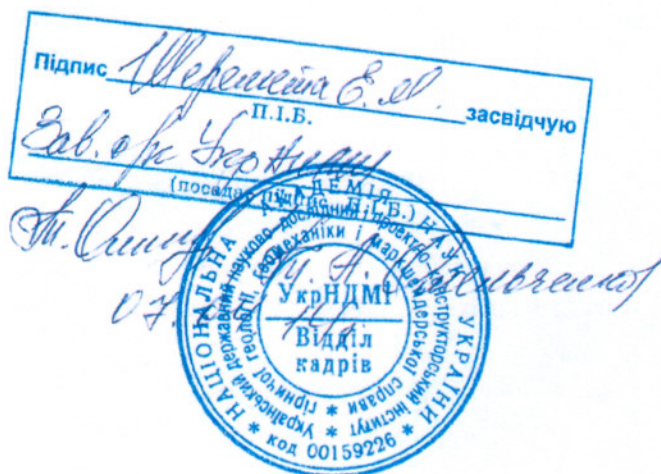 Підпис Шеремета Е.М. засвідчую
П.І.Б.
Зав. о/к УкрНДМІ
(посада, підпис, П.І.Б.)
НАЦІОНАЛЬНА АКАДЕМІЯ НАУК УКРАЇНИ
Український державний науково-дослідний і проектно-конструкторський інститут
гірничої геології, геомеханіки і маркшейдерської справи
УкрНДМІ
Відділ
кадрів
* код 00159226 *